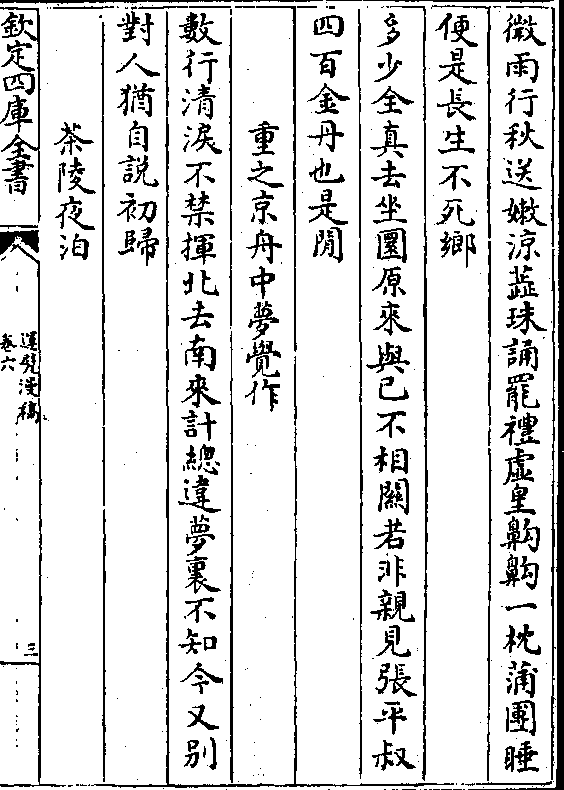 微雨行秋送嫩涼蕋珠誦罷禮虛皇齁齁一枕蒲團睡
便是長生不死鄉
多少全真去坐圜原來與已不相關若非親見張平叔
四百金丹也是閒
重之京舟中夢覺作
數行清淚不禁揮北去南來計總違夢裏不知今又别
對人猶自説初歸
茶陵夜泊
欽定四庫全書
運甓漫稿
卷六
三